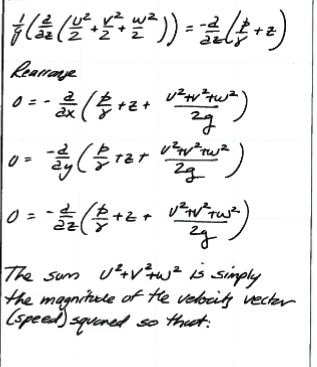 1/g(∂/∂z(U²/2 + V²/2 + w²/2)) = -∂/∂z(p/γ + z)
Rearrange
0 = - ∂/∂x(p/γ + z + U²+V²+w²/2g)
0 = -∂/∂y(p/γ + z + U²+V²+w²/2g)
0 = -∂/∂z(p/γ + z + U²+V²+w²/2g)
The sum U²+V²+w² is simply
the magnitude of the velocity vector
(speed) squared so that: